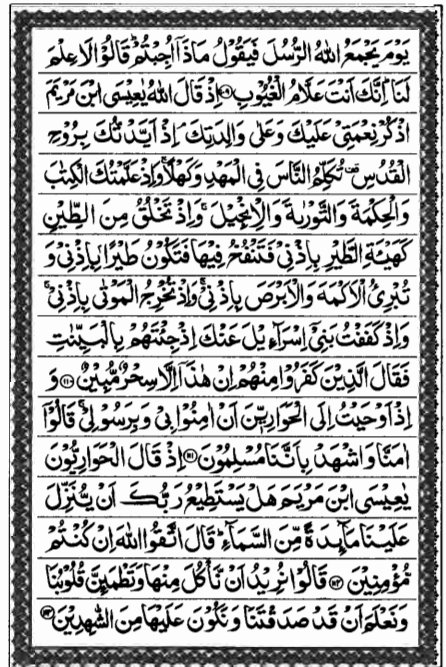 يَوْمَ يَجْمَعُ اللهُ الرُّسُلَ فَيَقُوْلُ مَاذَآ اُجِبْتُمْ ؕ قَالُوْا لَا عِلْمَ
لَنَا ؕ اِنَّكَ اَنْتَ عَلَّامُ الْغُيُوْبِ ﴿۱۰۹﴾ اِذْ قَالَ اللهُ يٰعِيْسَى ابْنَ مَرْيَمَ
اذْكُرْ نِعْمَتِيْ عَلَيْكَ وَعَلٰى وَالِدَتِكَ ۘ اِذْ اَيَّدْتُّكَ بِرُوْحِ
الْقُدُسِ ۟ تُكَلِّمُ النَّاسَ فِي الْمَهْدِ وَكَهْلًا ۚ وَاِذْ عَلَّمْتُكَ الْكِتٰبَ
وَالْحِكْمَةَ وَالتَّوْرٰىةَ وَالْاِنْجِيْلَ ۚ وَاِذْ تَخْلُقُ مِنَ الطِّيْنِ
كَهَيْـَٔةِ الطَّيْرِ بِاِذْنِيْ فَتَنْفُخُ فِيْهَا فَتَكُوْنُ طَيْرًۢا بِاِذْنِيْ وَ
تُبْرِئُ الْاَكْمَهَ وَالْاَبْرَصَ بِاِذْنِيْ ۚ وَاِذْ تُخْرِجُ الْمَوْتٰى بِاِذْنِيْ ۚ
وَاِذْ كَفَفْتُ بَنِيْٓ اِسْرَآءِيْلَ عَنْكَ اِذْ جِئْتَهُمْ بِالْبَيِّنٰتِ
فَقَالَ الَّذِيْنَ كَفَرُوْا مِنْهُمْ اِنْ هٰذَآ اِلَّا سِحْرٌ مُّبِيْنٌ ﴿۱۱۰﴾ وَ
اِذْ اَوْحَيْتُ اِلَى الْحَوَارِيّٖنَ اَنْ اٰمِنُوْا بِيْ وَبِرَسُوْلِيْ ۚ قَالُوْٓا
اٰمَنَّا وَاشْهَدْ بِاَنَّنَا مُسْلِمُوْنَ ﴿۱۱۱﴾ اِذْ قَالَ الْحَوَارِيُّوْنَ
يٰعِيْسَى ابْنَ مَرْيَمَ هَلْ يَسْتَطِيْعُ رَبُّكَ اَنْ يُّنَزِّلَ
عَلَيْنَا مَآئِدَةً مِّنَ السَّمَآءِ ؕ قَالَ اتَّقُوا اللهَ اِنْ كُنْتُمْ
مُّؤْمِنِيْنَ ﴿۱۱۲﴾ قَالُوْا نُرِيْدُ اَنْ نَّاْكُلَ مِنْهَا وَتَطْمَئِنَّ قُلُوْبُنَا
وَنَعْلَمَ اَنْ قَدْ صَدَقْتَنَا وَنَكُوْنَ عَلَيْهَا مِنَ الشّٰهِدِيْنَ ﴿۱۱۳﴾